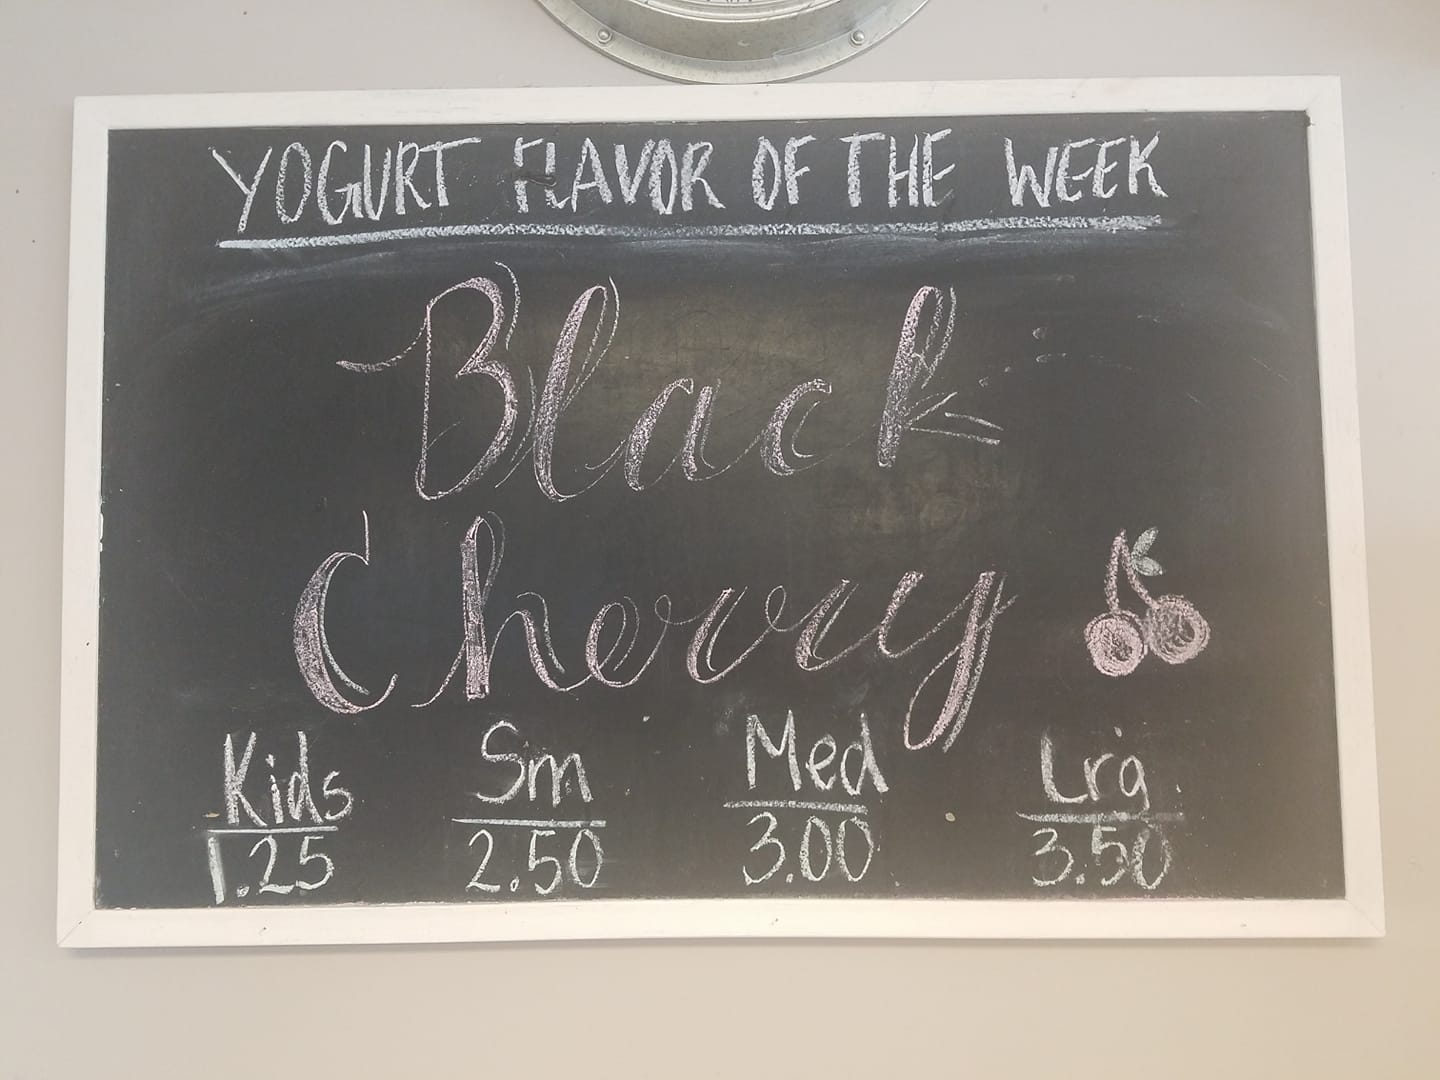 YOGURT FLAVOR OF THE WEEK
Black
Cherry
Kids Sm Med Lrg
1.25 2.50 3.00 3.50